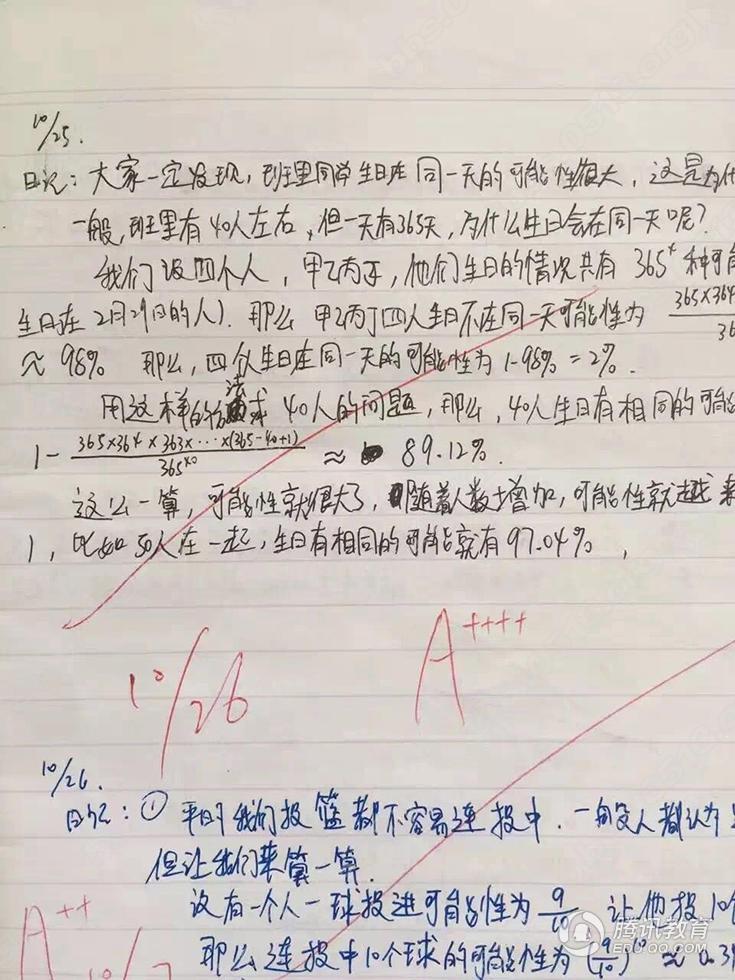 10/25.
日记：大家一定发现，班里同学生日在同一天的可能性很大，这是为什
一般，班里有40人左右，但一天有365天，为什么生日会在同一天呢？
我们设四个人，甲乙丙丁，他们生日的情况共有 365⁴ 种可能
生日在2月29日的人）. 那么 甲乙丙丁四人生日不在同一天可能性为 365×364
36
≈ 98% 那么，四个人生日在同一天的可能性为1-98%=2%.
用这样的方法求40人的问题，那么，40人生日有相同的可能
1- 365×364×363×…×(365-40+1) / 365⁴⁰ ≈ 89.12%.
这么一算，可能性就很大了，随着人数增加，可能性就越来
1，比如50人在一起，生日有相同的可能就有97.04%，
A++++
10/26
10/26.
日记：① 平时我们投篮都不容易连投中. 一般人都认为
但让我们来算一算.
设有一个人一球投进可能性为 9/10 让他投10个
那么连投中10个球的可能性为 (9/10)¹⁰ ≈ 0.3
A++
10/
腾讯教育
EDU.QQ.COM